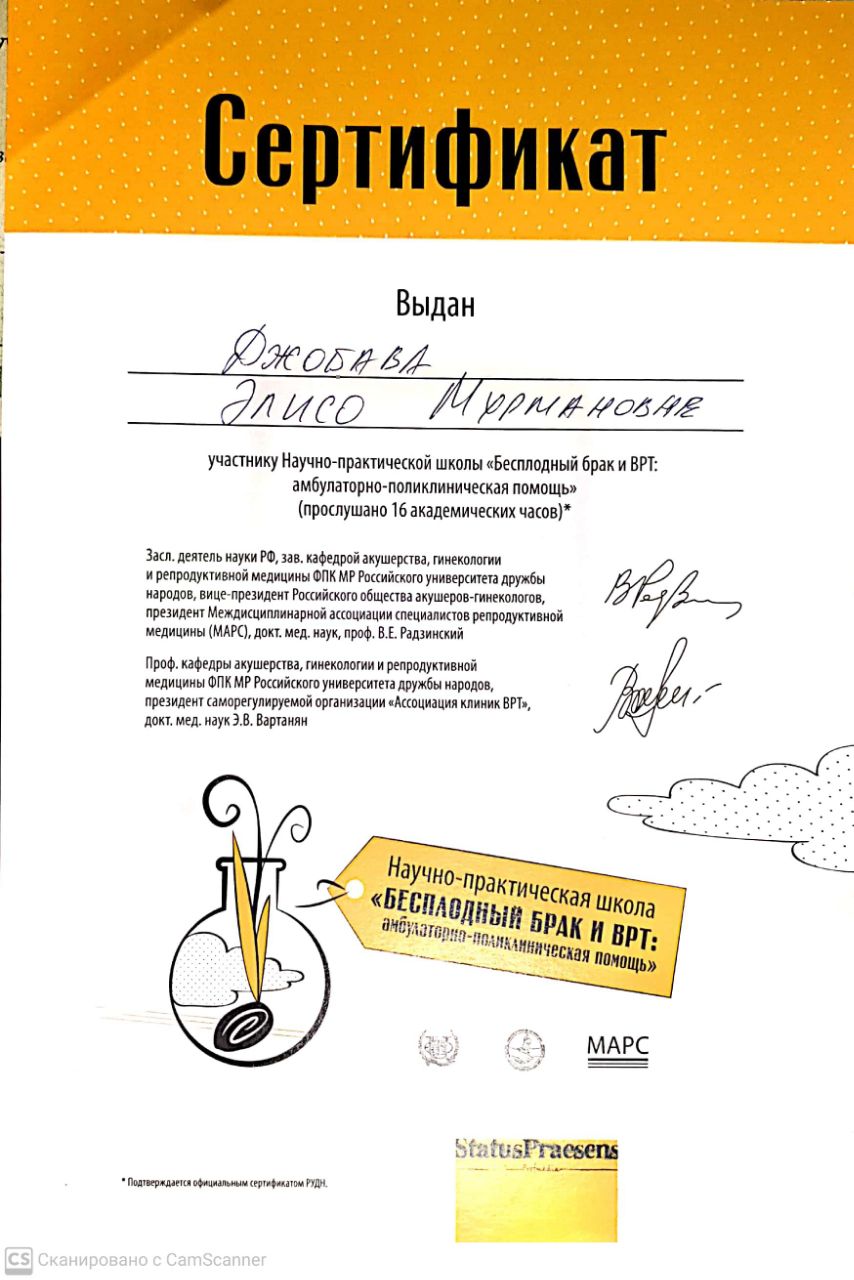 Сертификат
Выдан
Джобава
Элисо Мурмановне
участнику Научно-практической школы «Бесплодный брак и ВРТ:
амбулаторно-поликлиническая помощь»
(прослушано 16 академических часов)*
Засл. деятель науки РФ, зав. кафедрой акушерства, гинекологии
и репродуктивной медицины ФПК МР Российского университета дружбы
народов, вице-президент Российского общества акушеров-гинекологов,
президент Междисциплинарной ассоциации специалистов репродуктивной
медицины (МАРС), докт. мед. наук, проф. В.Е. Радзинский
Проф. кафедры акушерства, гинекологии и репродуктивной
медицины ФПК МР Российского университета дружбы народов,
президент саморегулируемой организации «Ассоциация клиник ВРТ»,
докт. мед. наук Э.В. Вартанян
Научно-практическая школа
«БЕСПЛОДНЫЙ БРАК И ВРТ:
амбулаторно-поликлиническая помощь»
МАРС
StatusPraesens
* Подтверждается официальным сертификатом РУДН.
CS Сканировано с CamScanner